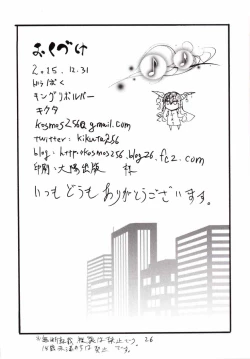 おくづけ
2015.12.31
キングリボルバー
キクタ
kosmos256@gmail.com
twitter: kikuta256
blog: http:kosmos256.blog26.fc2.com
印刷：大陽出版 様
いつもどうもありがとうございます。
※無断転載 複製は禁止です。
26